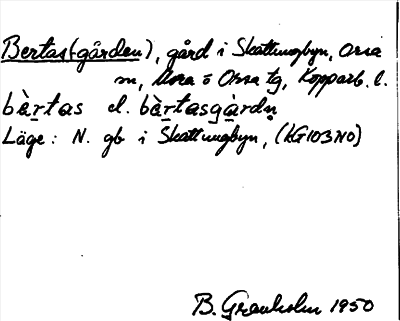 Bertas(-gården), gård i Skattungbyn, Orsa
sn, Mora o Orsa tg, Kopparb. l.
bàrtas el. bàrtasgàrdn̥
Läge: N. gb i Skattungbyn, (KG103NO)
B. Granholm 1950